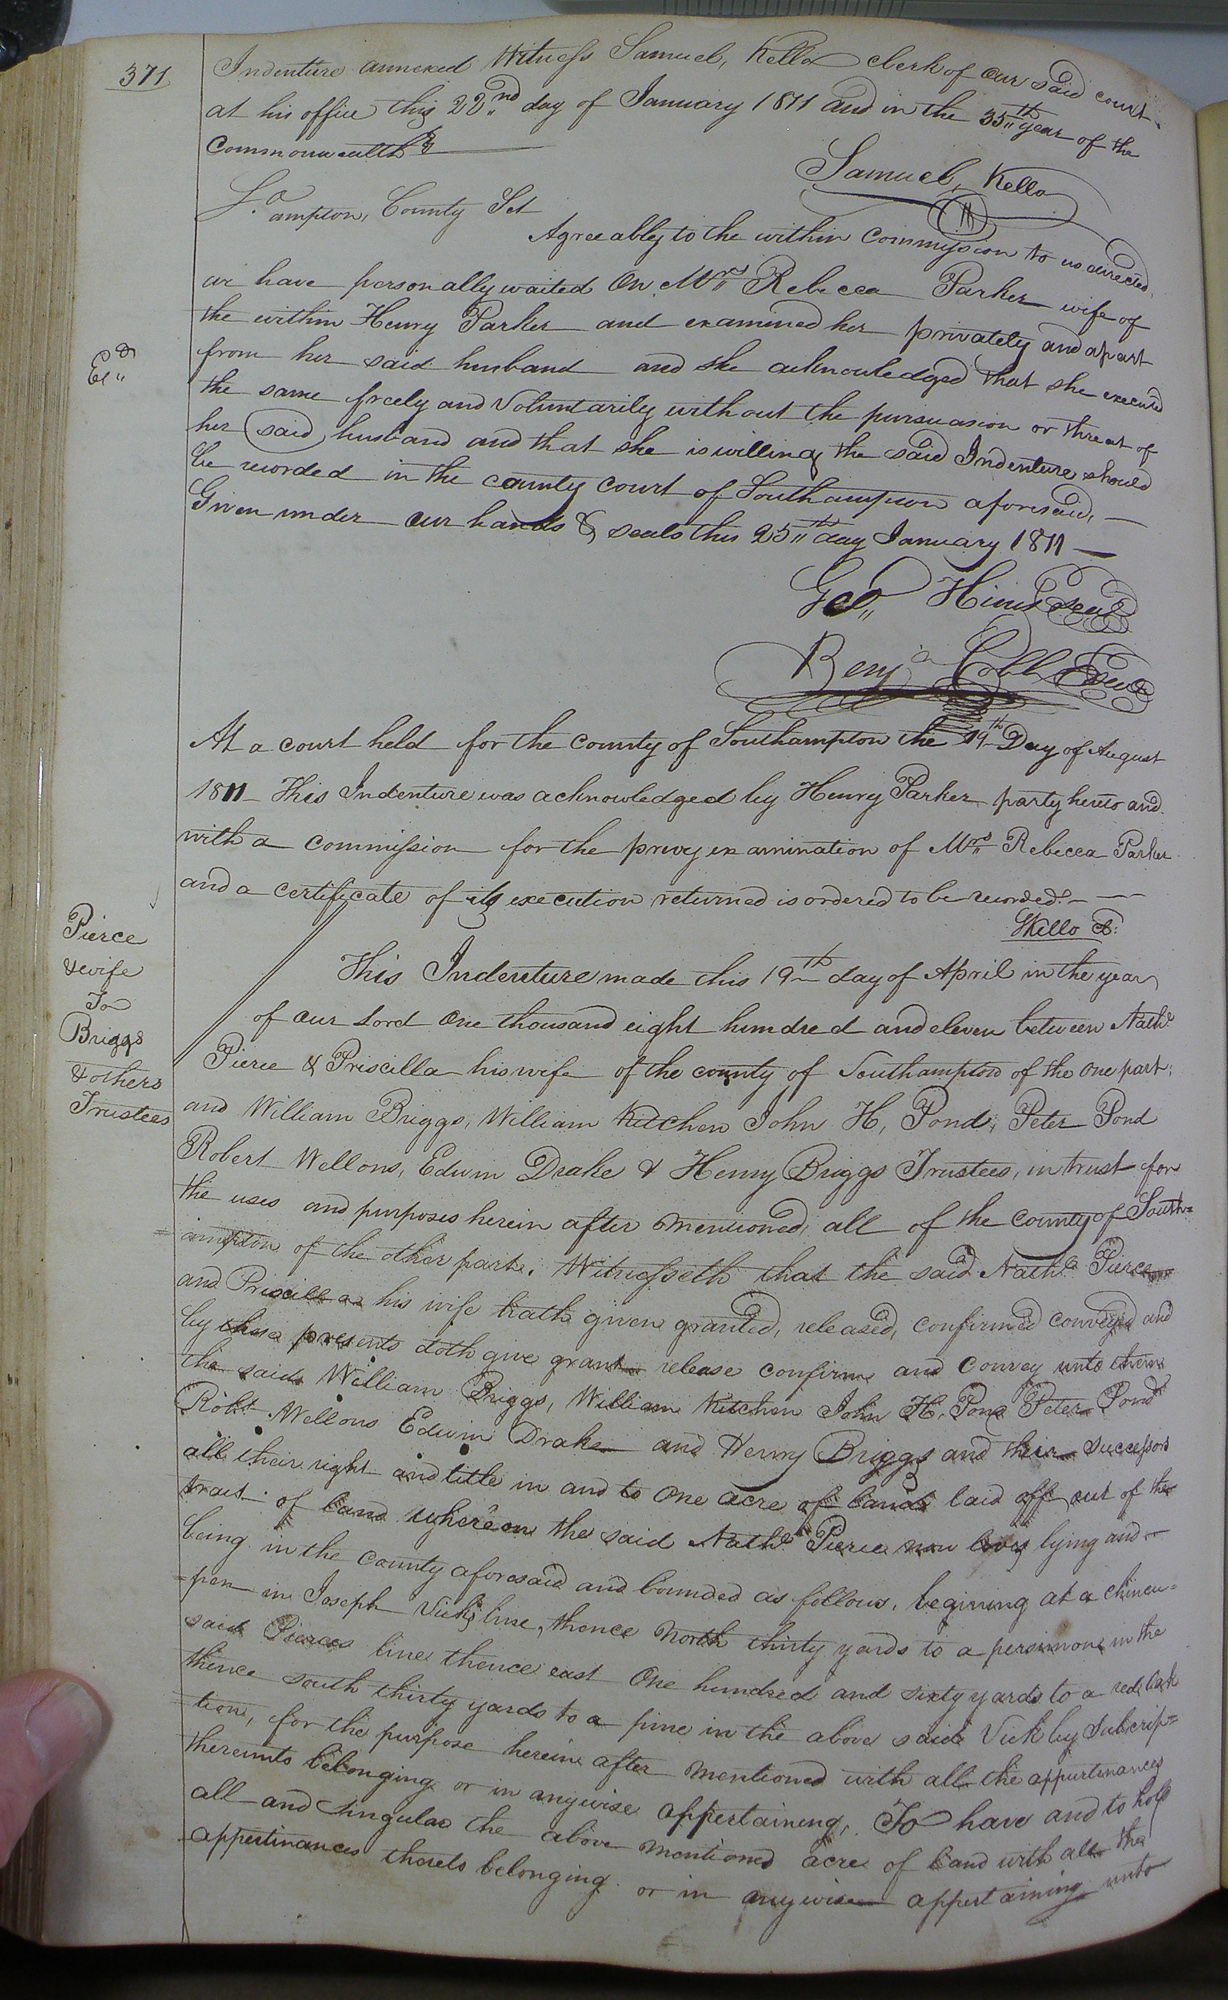 371
Indenture annexed Witness Samuel, Kello clerk of our said court
at his office this 22nd day of January 1811 and in the 35th year of the
Commonwealth
Samuel, Kello
S.ampton, County Sct
Agreeably to the within Commission to us directed
we have personally waited On Mrs Rebecca Parker wife of
the within Henry Parker and examined her privately and apart
from her said husband and she acknowledged that she executed
Exd
the same freely and Voluntarily without the pursuasion or threat of
her said husband and that she is willing the said Indenture should
be recorded in the county court of Southampton aforesaid,
Given under our hands & seals this 25th day January 1811
Geo, Hines Seal
Benja Cobb Seal
At a court held for the County of Southampton the 19th Day of August
1811 This Indenture was acknowledged by Henry Parker party hereto and
with a commission for the privy examination of Mrs Rebecca Parker
and a certificate of its execution returned is ordered to be recorded.
SKello
Pierce
& wife
To
Briggs
& others
Trustees
This Indenture made this 19th day of April in the year
of our Lord One thousand eight hundred and eleven between Nathl
Pierce & Priscilla his wife of the county of Southampton of the one part,
and William Briggs, William Kitchen John H, Pond, Peter Pond
Robert Wellons, Edwin Drake & Henry Briggs Trustees, in trust for
the uses and purposes herein after mentioned, all of the county of South=
=ampton of the other part, Witnesseth that the said Nathl Pierce
and Priscilla his wife hath given granted, released, confirmed conveyed and
by these presents doth give grant release confirm and Convey unto them
the said William Briggs, William Kitchen John H. Pond Peter Pond
Robt Wellons Edwin Drake and Henry Briggs and their successors
all their right and title in and to One acre of land laid off out of the
tract of land whereon the said Nathl Pierce now lives lying and
being in the county aforesaid and bounded as follows, begining at a chincu=
=pen in Joseph Vicks line, thence North thirty yards to a persimon in the
said Pierces line thence east One hundred and sixty yards to a red Oak
thence South thirty yards to a pine in the above said Vick by Subcrip=
=tion, for the purpose herein after mentioned with all the appurtenances
thereunto belonging or in anywise appertaining, To have and to hold
all and singular the above mentioned acre of land with all the
appertinances thereto belonging or in anywise appertaining unto